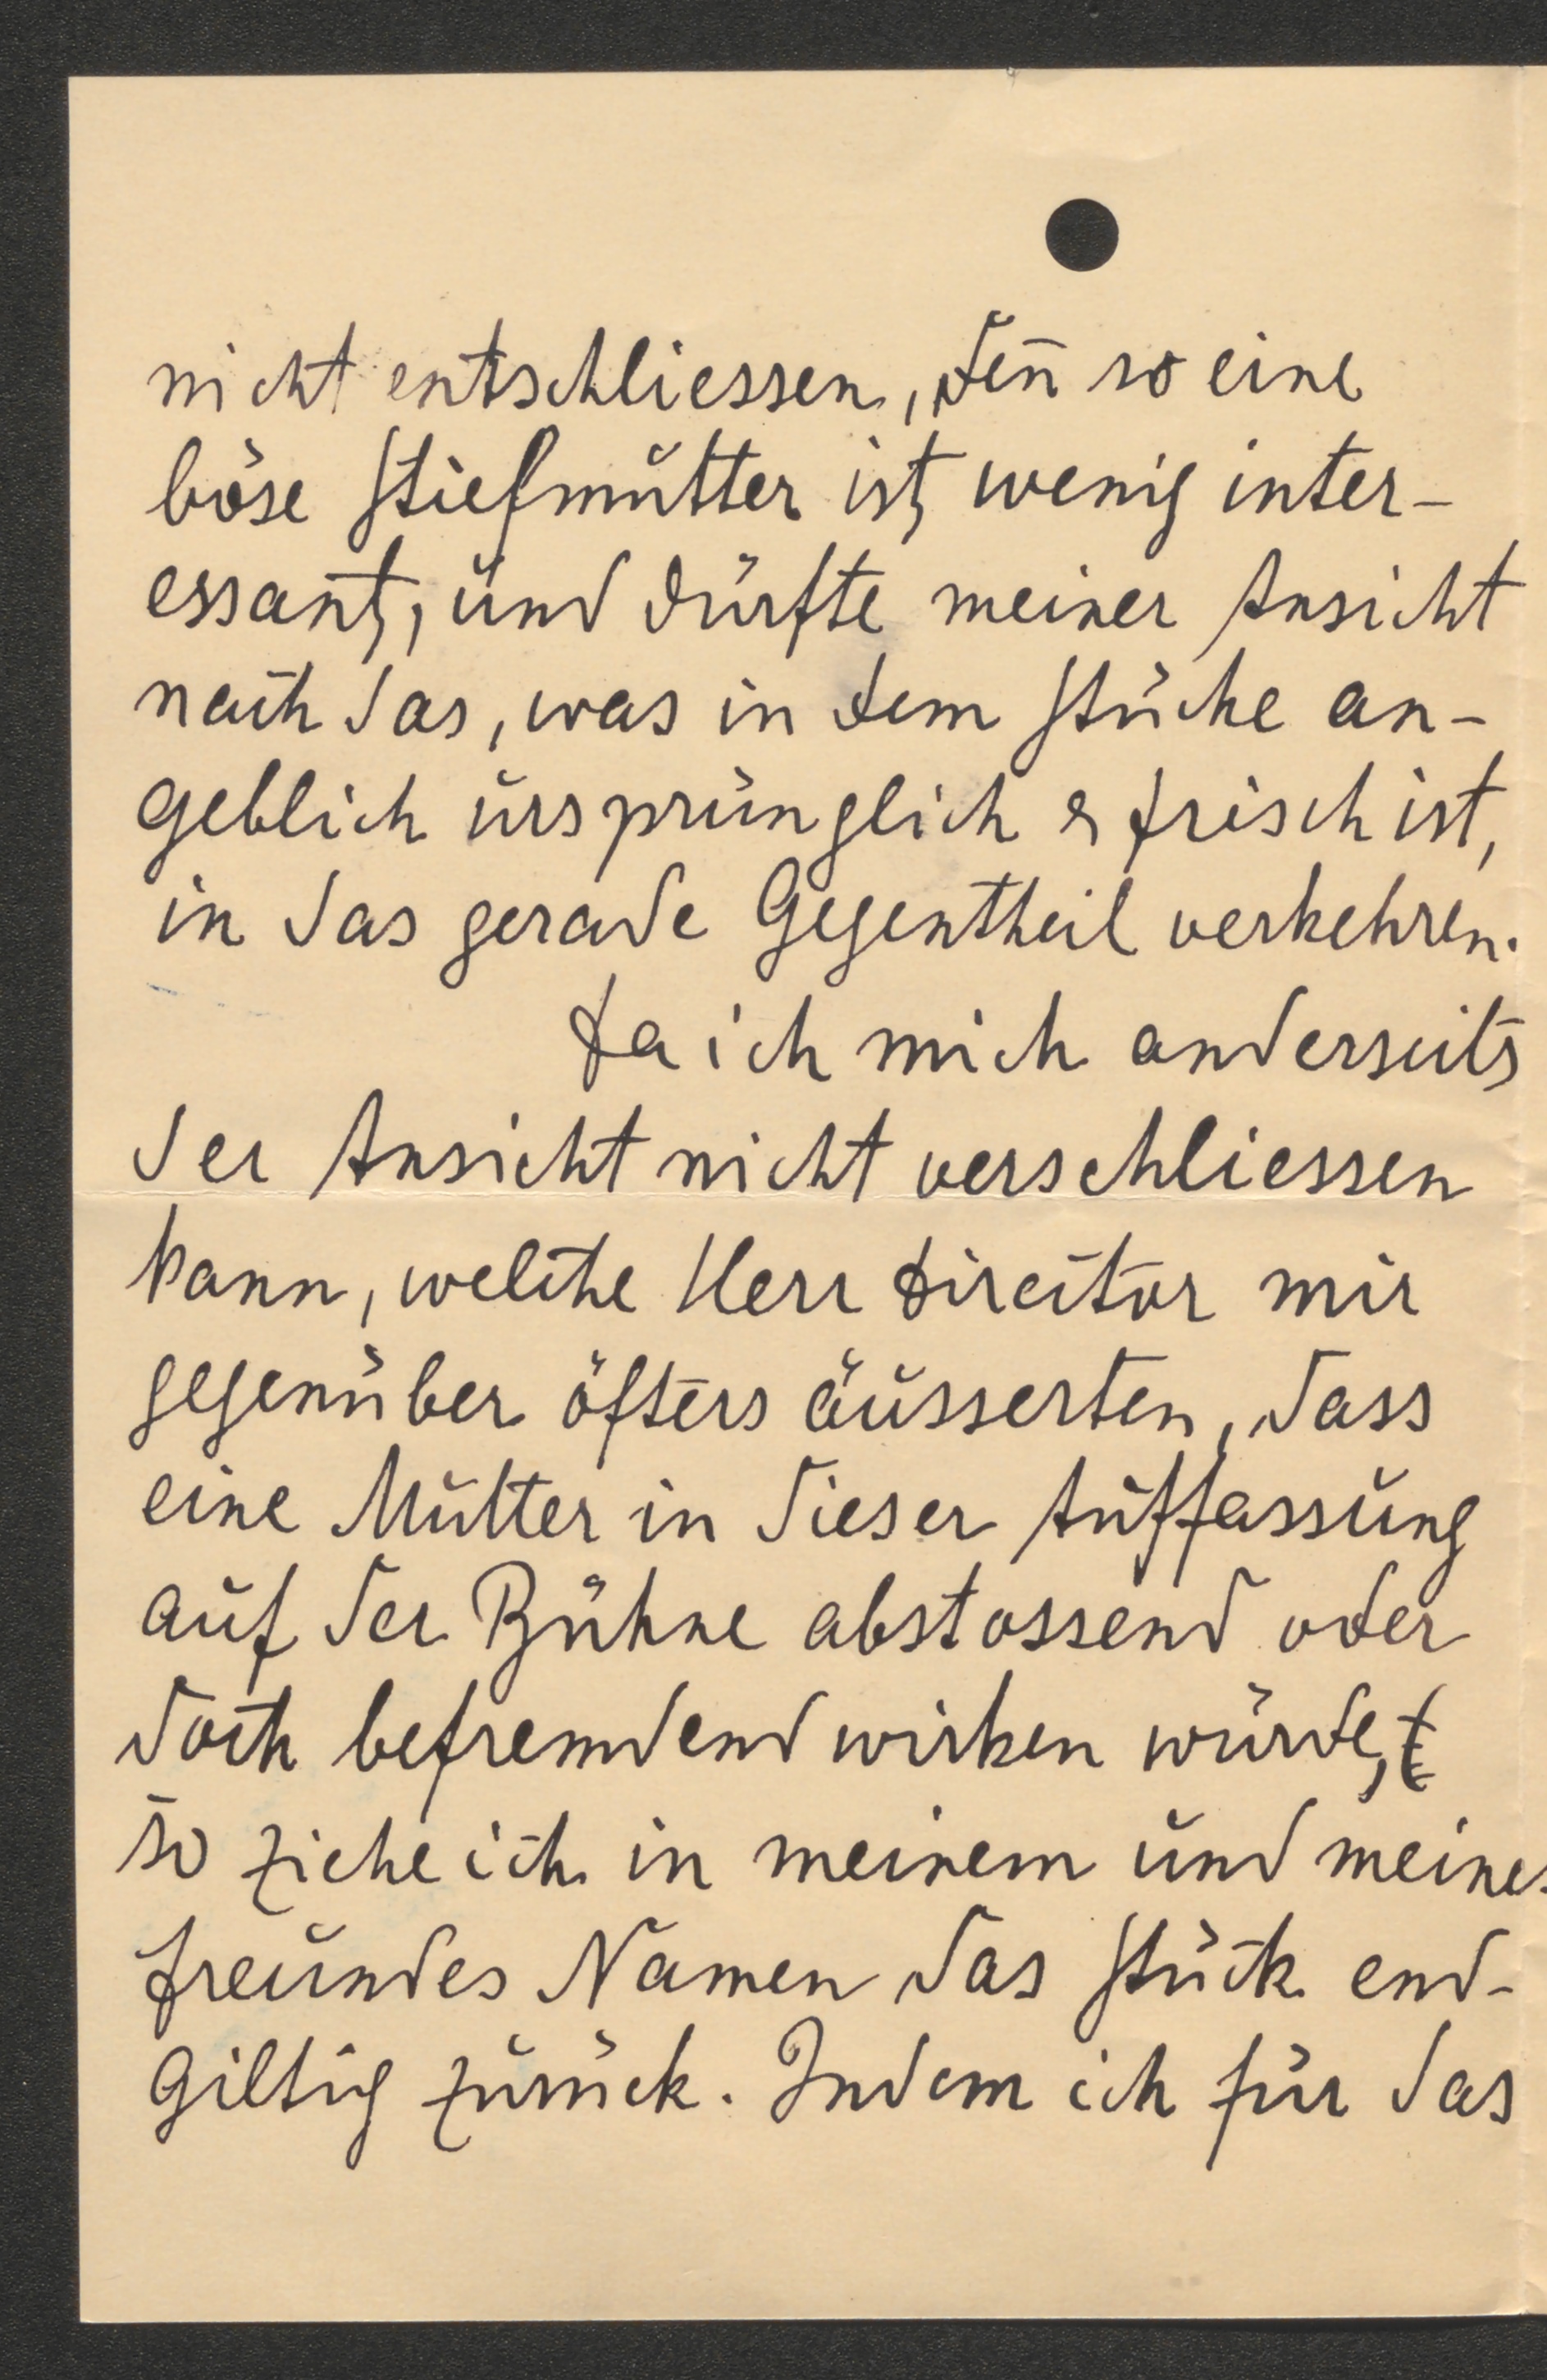 nicht entschliessen, den̄ so eine
böse Stiefmutter ist wenig inter-
essant, und dürfte meiner Ansicht
nach das, was in dem Stücke an-
geblich ursprünglich & frisch ist,
in das gerade Gegentheil verkehren.
Da ich mich anderseits
der Ansicht nicht verschliessen
kann, welche Herr Director mir
gegenüber öfters äusserten, dass
eine Mutter in dieser Auffassung
auf der Bühne abstossend oder
doch befremdend wirken würde,
so ziehe ich in meinem und meines
Freundes Namen das Stück end-
giltig zurück. Indem ich für das